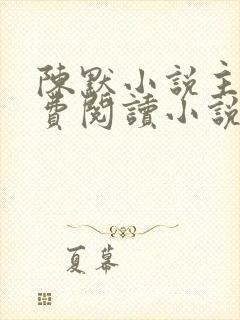 陳默小說主
費閱讀小說
夏幕